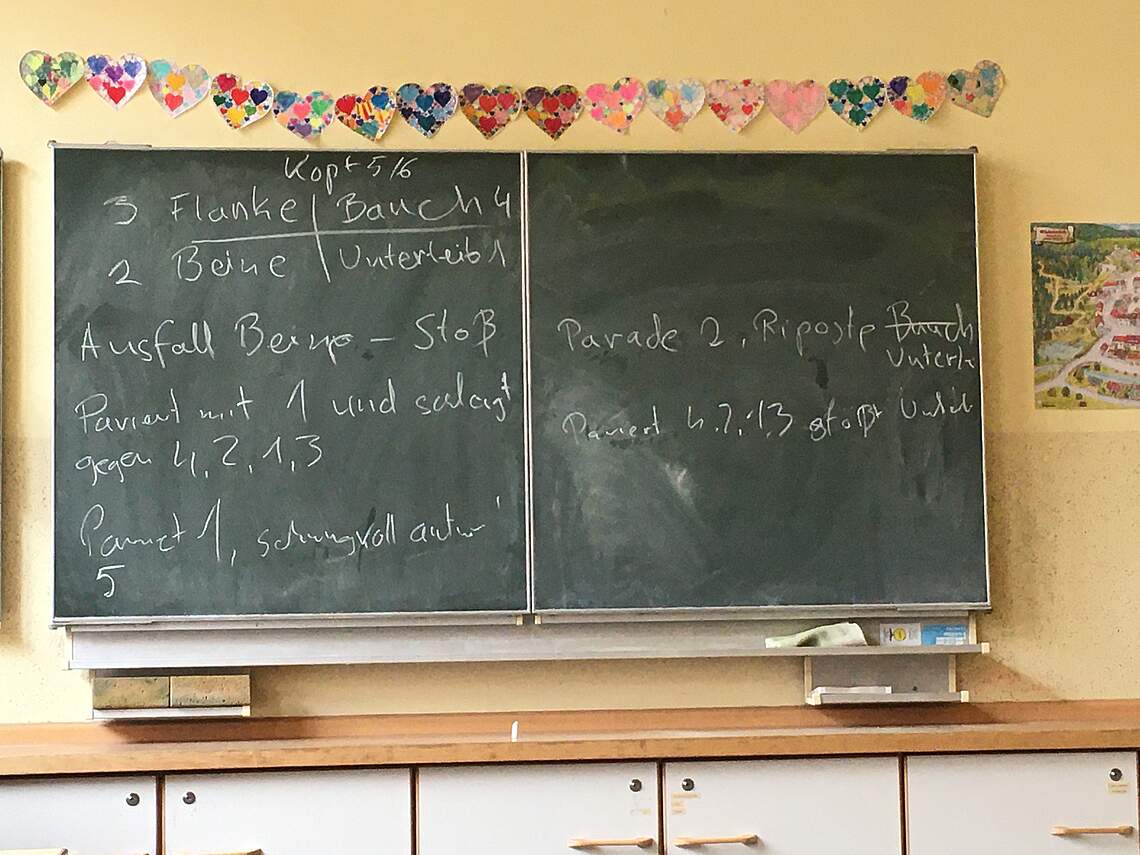 Kopf 5/6
3 Flanke | Bauch 4
2 Beine | Unterleib 1
Ausfall Beine – Stoß
Pariert mit 1 und schlägt
gegen 4, 2, 1, 3
Pariert 1, schwungvoll
5
Parade 2, Riposte Bauch
Unterle
Pariert 4, 2, 1, 3 stößt